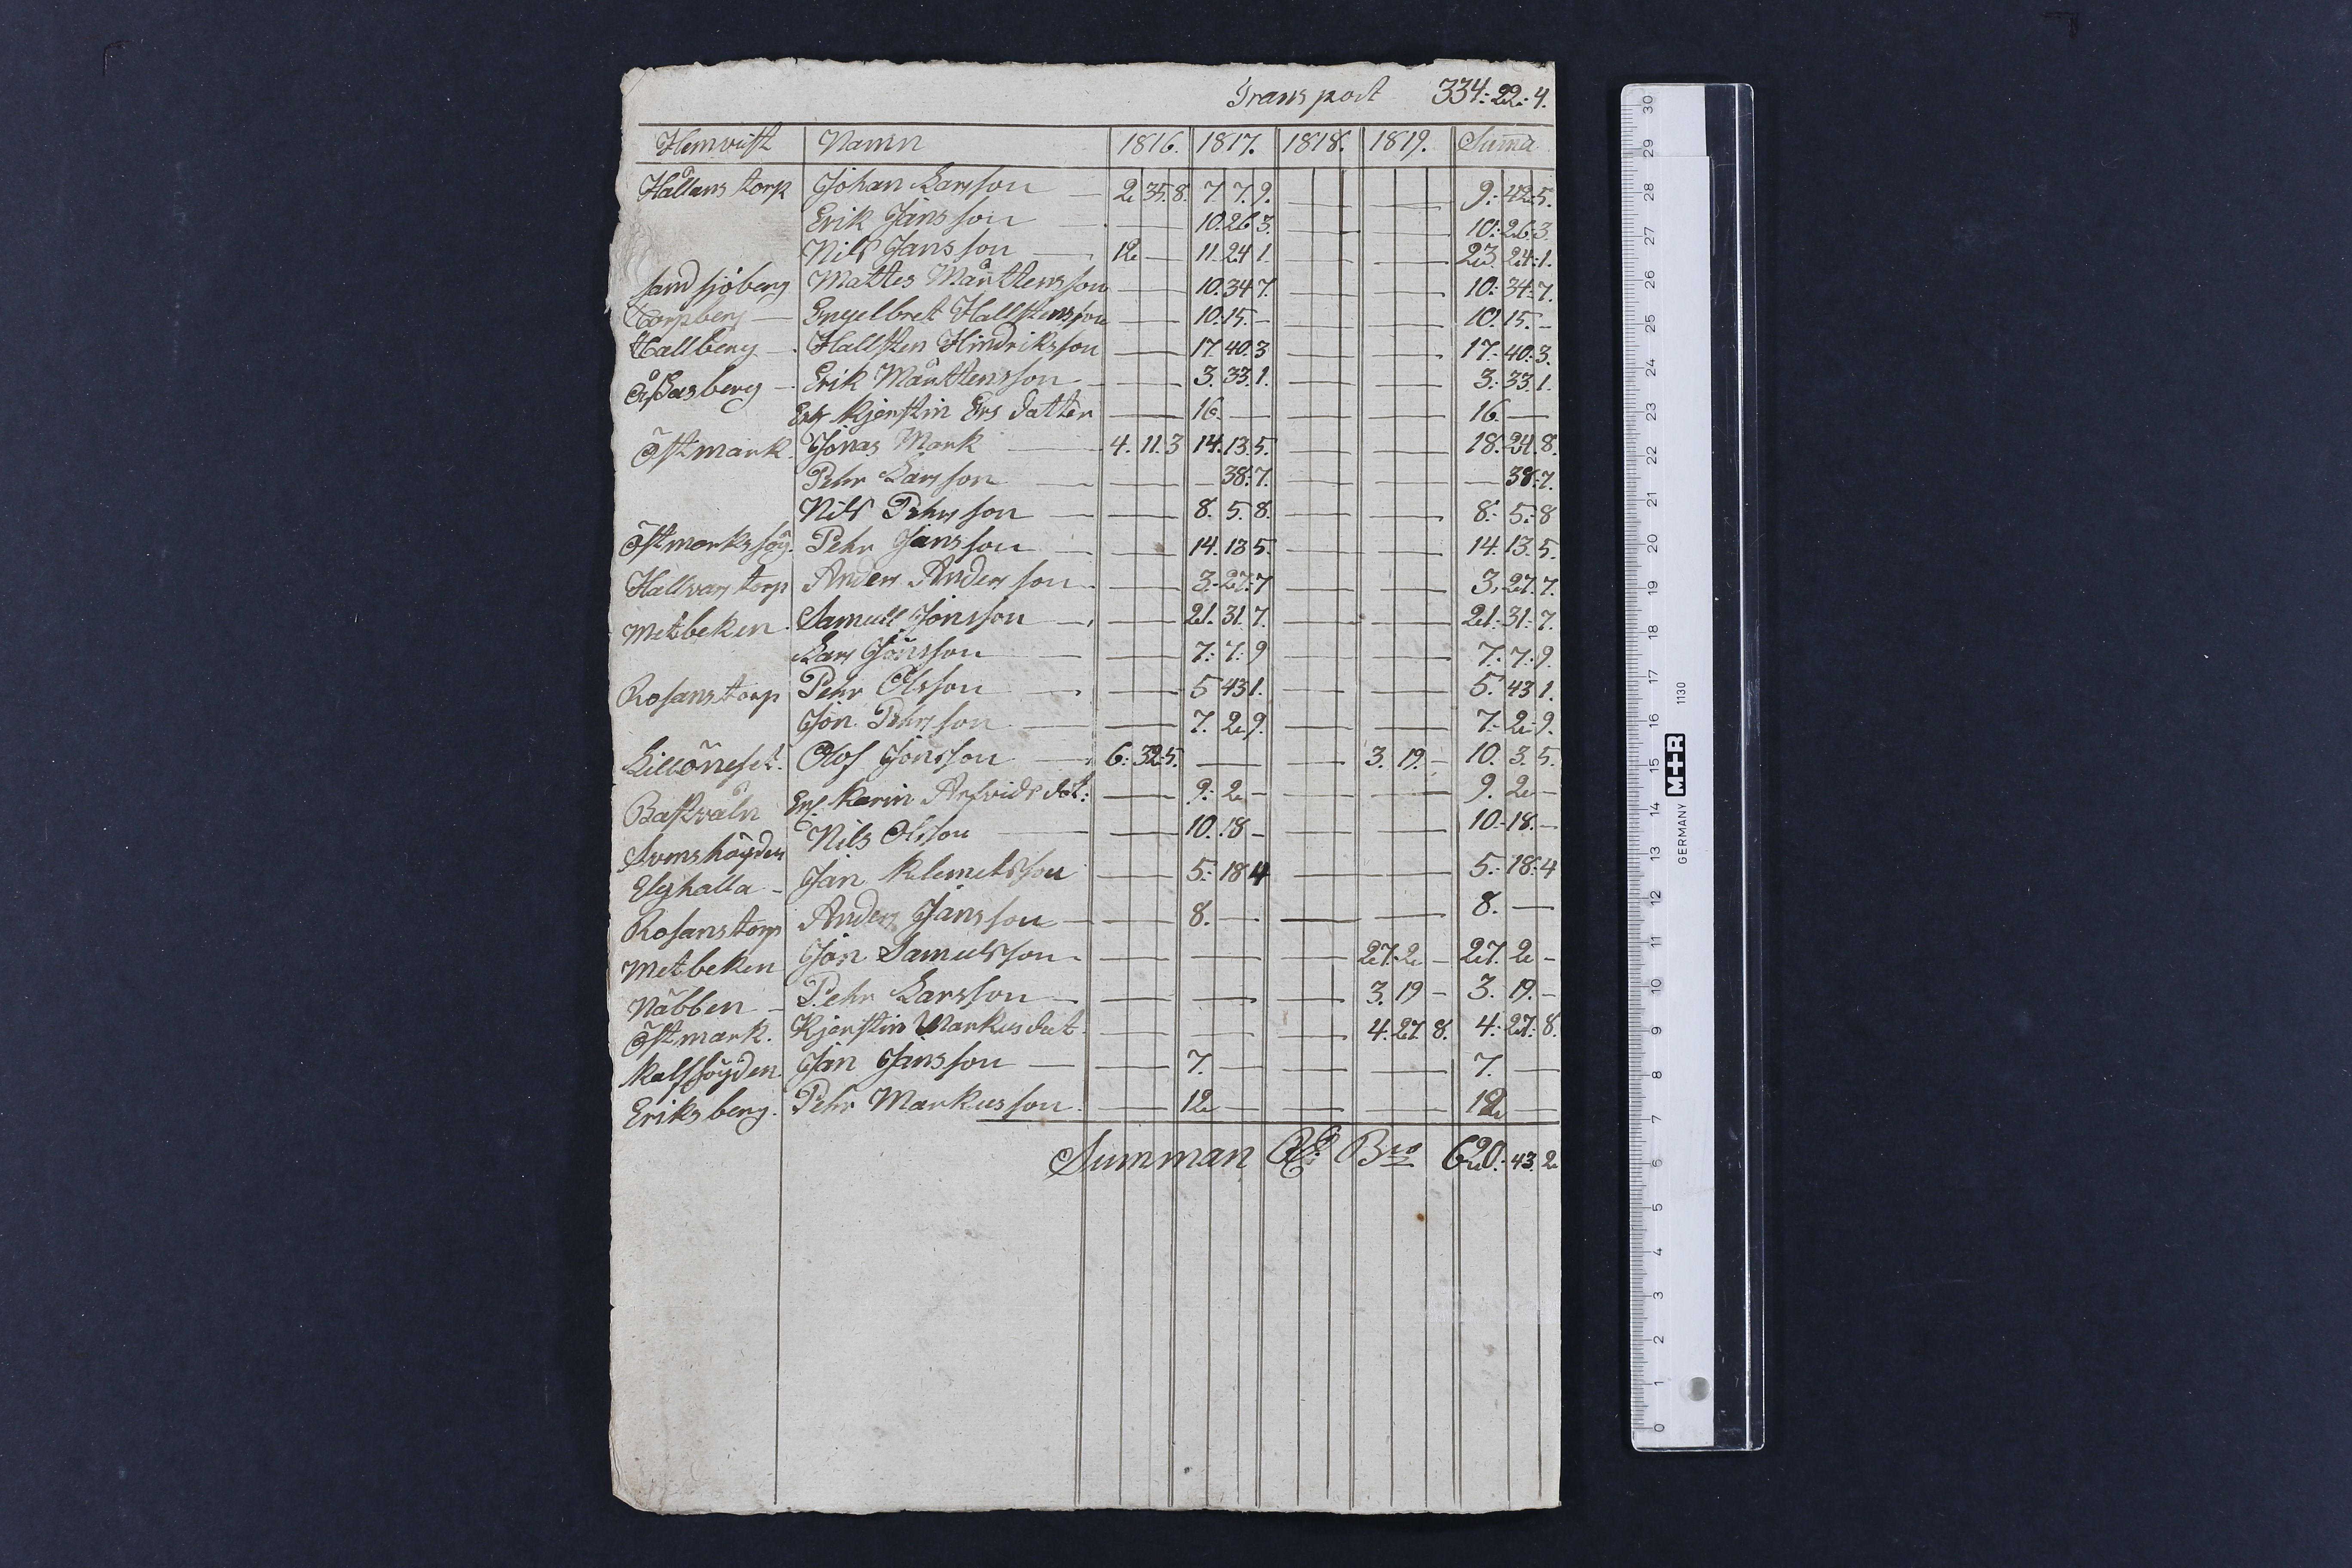 Transport 334:22:4.
Hemvist Namn 1816. 1817. 1818. 1819. Suma
Hållans torp Johan Larsson — 2 35. 8. 7 7. 9. — — 9: 42. 5.
Erik Jansson — — 10. 26 3. — — 10: 26: 3.
Nils Jansson — 12 — 11. 24 1. — — 23. 24: 1.
Sandsjöberg Mattes Mårttensson — 10. 34 7. — — 10: 34: 7.
Torpberg — Engelbret Hallstensson — 10. 15. — — — 10. 15. —
Hallberg — Hallsten Hindriksson — 17. 40. 3 — — 17: 40: 3.
Åssasberg — Erik Mårttensson — — 3. 33. 1. — — 3: 33. 1.
Enk Kjerstin Ers datter — 16. — — — 16. —
Östmark. Jonas Mark — 4. 11. 3 14. 13. 5. — — 18. 24. 8.
Pehr Larsson — — — 38: 7. — — — 38: 7.
Nils Pehrsson — — 8. 5. 8. — — 8: 5: 8
Östmarkshög. Pehr Jansson — — 14. 13 5. — — 14. 13. 5.
Hallvarstorp Anders Andersson — — 3. 27: 7 — — 3. 27. 7.
Metbeken Samuel Jonsson — — 21. 31. 7. — — 21: 31: 7.
Lars Jönsson — — 7: 7: 9 — — 7: 7: 9.
Rosanstorp Pehr Olsson — — 5 43 1. — — 5: 43 1.
Jon Pehrsson — — 7. 2 9. — — 7: 2: 9.
Olof Jonsson — 6: 32: 5. — — 3. 19. — 10. 3. 5.
Enk. Karin Arfvids dot: — 9: 2 — — — 9. 2 —
Nils Olsson — — 10. 18 — — — 10. 18. —
Elghalla — Jan Klemetsson — 5: 18 4 — — 5: 18: 4
Rosanstorp Anders Jansson — — 8. — — — 8. —
Metbeken Jon Samuelsson — — — — 27. 2 — 27. 2 —
Näbben — Pehr Larsson — — — — 3. 19 — 3. 19. —
Östmark. Kjerstin Markusdot. — — — 4. 27 8. 4: 27: 8.
Kalfhöjden Jan Jansson — — 7. — — — 7. —
Eriksberg. Pehr Markusson. — 12 — — — 12 —
Summan Rd Bco 620: 43. 2
30 29 28 27 26 25 24 23 22 21 20 19 18 17 16 15 14 13 12 11 10 9 8 7 6 5 4 3 2 1 0
GERMANY M+R 1130